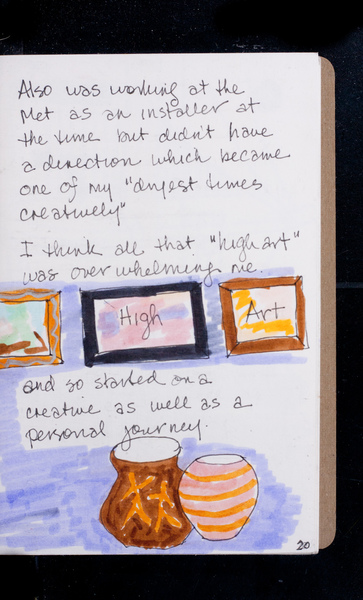 Also was working at the
Met as an installer at
the time but didn't have
a direction which became
one of my "dryest times
creatively"
I think all that "high art"
was over whelming me.
High
Art
and so started on a
creative as well as a
personal journey.
20